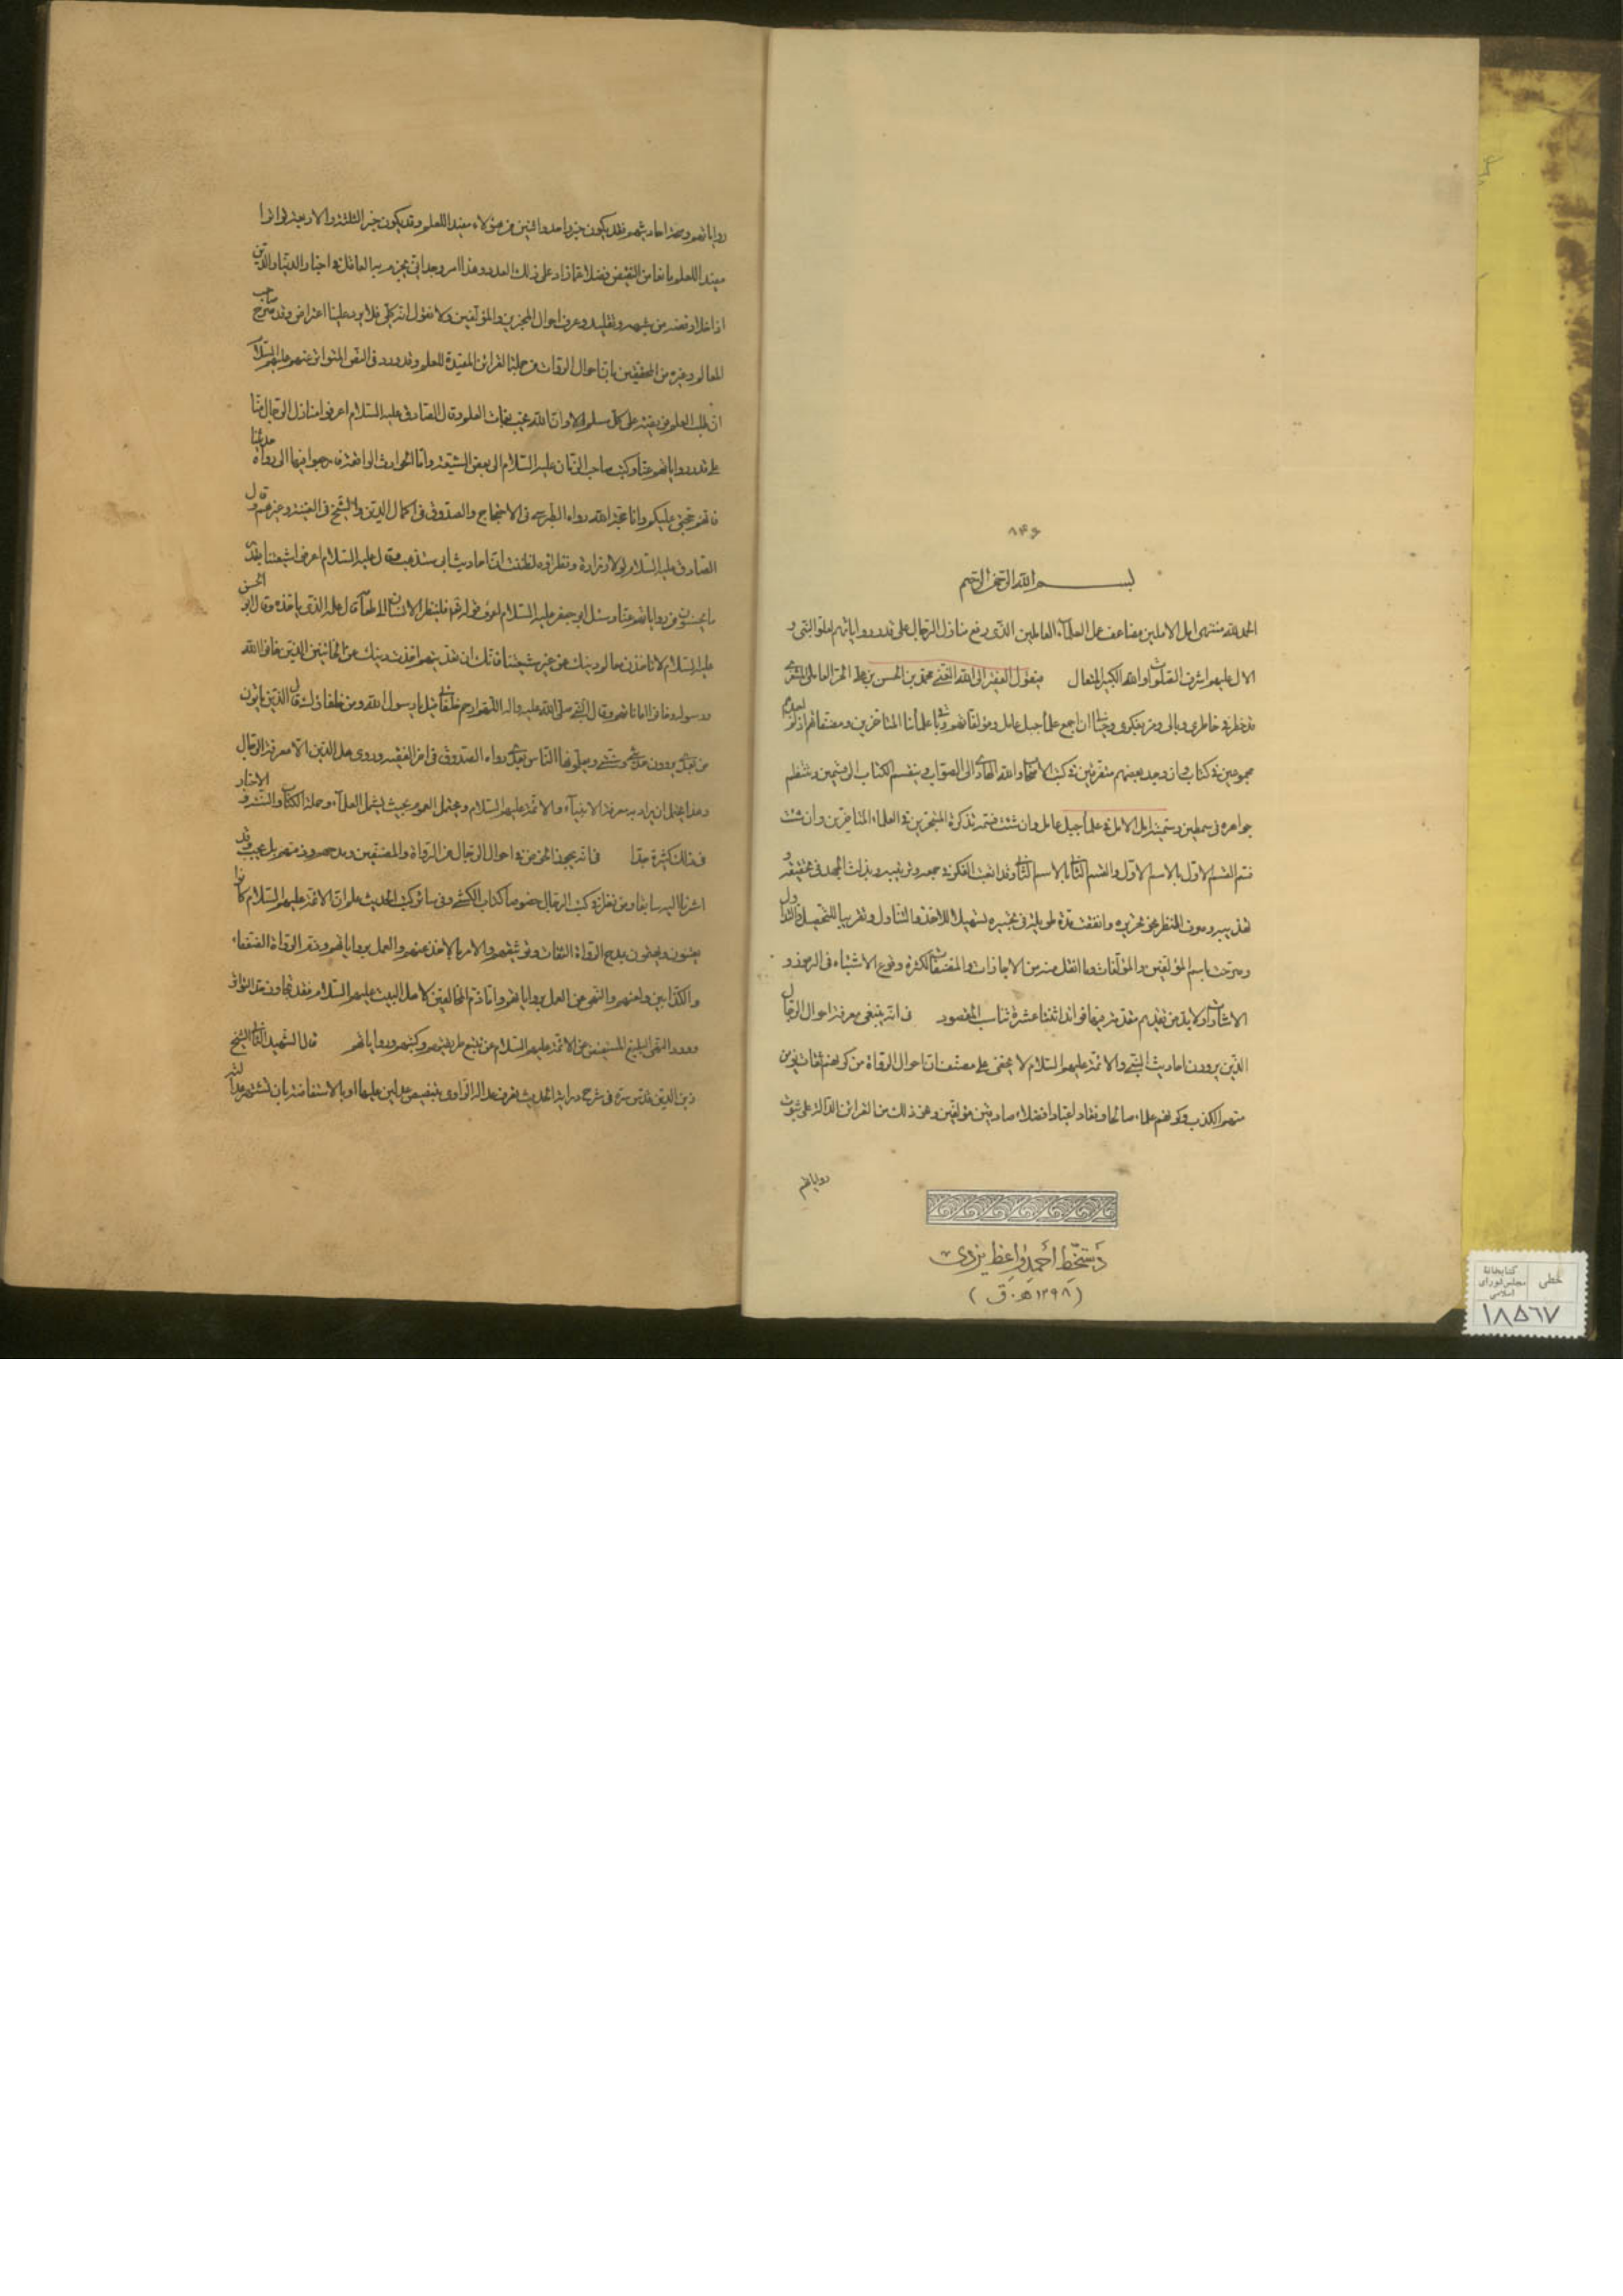 ۸۴۶
بسم الله الرحمن الرحیم
الحمد لله منتهی امل الاملین مضاعف عمل العلمآء العاملین الذی رفع منازل الرجال علی قدر روایاتهم لعلو النبی و
الال علیهم اشرف الصلوات والله الکبیر المتعال فیقول الفقیر الی الله الغنی محمد بن الحسن بن علی الحر العاملی المشغری
قد خطر فی خاطری وبالی ومر بفکری وخیالی ان اجمع علمآء جبل عامل ومؤلفاتهم وباقی علمائنا المتاخرین ومصنفاتهم اذ لم اجدهم
مجموعین فی کتاب وان وجد بعضهم متفرقین فی کتب الاصحاب والله الهادی الی الصواب وینقسم الکتاب الی قسمین وینتظم
جواهره فی سمطین وسمیته امل الامل فی علمآء جبل عامل وان شئت فسمه تذکرة المتبحرین فی العلماء المتاخرین وان شئت
فسم القسم الاول بالاسم الاول والقسم الثانی بالاسم الثانی وقد اتعبت الفکر فی جمعه وترتیبه وبذلت الجهد فی تحقیقه و
تهذیبه وصرف النظر نحو تحریره وانفقت مدة طویلة فی تحبیره تسهیلا للاخذ والتناول وتقریبا للتحصیل والتداول
وصرحت باسم المؤلفین والمؤلفات وما انقل منه من الاجازات والمصنفات لکثرة وقوع الاشتباه فی الرموز و
الاشارات ولا بد من تقدیم مقدمة فیها فوائد اثنتا عشرة تناسب المقصود ف انه ینبغی معرفة احوال الرجال
الذین یروون احادیث النبی والائمة علیهم السلام لا یخفی علی مصنف ان احوال الرواة من کونهم ثقات یؤمن
منهم الکذب وکونهم علماء صالحا وزهاد اتقیاء وافضلاء صادقین مؤلفین ونحو ذلک من القرائن الدالة علی ثبوت
روایاتهم
دستخط احمد واعظ یزدی
(۱۲۹۸ ه‍.ق)
خطی
کتابخانهٔ
مجلس شورای
اسلامی
۱۸۵۶۷
روایاتهم وصحة احادیثهم فقد یکون خبر واحد واثنین من هؤلاء مفیدا للعلم وقد یکون خبر الثلثة والاربعة لو انفردوا
مفیدا للعلم مانعا من النقیض فضلا عما زاد علی ذلک العدد وهذا امر وجدانی یجزم به العاقل فی اخبار الدنیا والدین
اذا خلا نفسه من شبهة وتقلید وعرف احوال المخبرین والمؤلفین ولا نقول انه کلی فلا یرد علینا اعتراض وقد صرح صاحب
المعالم وغیره من المحققین بان احوال الرواة من جملة القرائن المفیدة للعلم وقد ورد فی النص المتواتر عنهم علیهم السلام
ان طلب العلم فریضة علی کل مسلم الا وان الله یحب بغاة العلم وقال الصادق علیه السلام اعرفوا منازل الرجال منا
علی قدر روایاتهم عنا وکتب صاحب الزمان علیه السلام الی بعض الشیعة واما الحوادث الواقعة فارجعوا فیها الی رواة حدیثنا
فانهم حجتی علیکم وانا حجة الله رواه الطبرسی فی الاحتجاج والصدوق فی اکمال الدین والشیخ فی الغیبة وغیرهم وقال
الصادق علیه السلام لولا زرارة ونظراؤه لظننت ان احادیث ابی ستذهب وقال علیه السلام اعرفوا شیعتنا بقدر
ما یحسنون من روایاتهم عنا وسئل ابو جعفر علیه السلام عن قوله تعالی فلینظر الانسان الی طعامه قال علمه الذی یاخذه وقال ابو الحسن
علیه السلام لا تاخذن معالم دینک عن غیر شیعتنا فانک ان تعدیتهم اخذت دینک عن الخائنین الذین خانوا الله
ورسوله وخانوا اماناتهم وقال النبی صلی الله علیه واله اللهم ارحم خلفائی قیل یا رسول الله ومن خلفاؤک قال الذین یاتون
من بعدی یروون حدیثی وسنتی ویعلمونها الناس بعدی رواه الصدوق فی اخر الفقیه وروی عماد الدین الا معرفة الرجال
وهذا یحتمل ان یراد به معرفة الانبیآء والائمة علیهم السلام ویحتمل العموم بحیث یشمل العلمآء وحملة الکتاب والسنة والاخبار
فی ذلک کثیرة جدا ف انه یجوز الخوض فی احوال الرجال من الرواة والمصنفین ومدحهم وذمهم بل یجب وقد
اشرنا الیه سابقا ومن نظر فی کتب الرجال خصوصا کتاب الکشی وفی سائر کتب الحدیث علم ان الائمة علیهم السلام کانوا
یعتنون ویحثون بمدح الرواة الثقات وتوثیقهم والامر بالاخذ عنهم والعمل بروایاتهم وبذم الرواة الضعفاء
والکذابین ولعنهم والنهی عن العمل بروایاتهم واما ذم المخالفین لاهل البیت علیهم السلام فقد تجاوز حد التواتر
وورد النهی البلیغ المستفیض عن الائمة علیهم السلام عن تتبع طریقتهم وکتبهم وروایاتهم قال الشهید الثانی الشیخ
زین الدین قدس سره فی شرح درایة الحدیث تعرف عدالة الراوی بتنصیص عدلین علیها او بالاستفاضة بان تشتهر عدالته